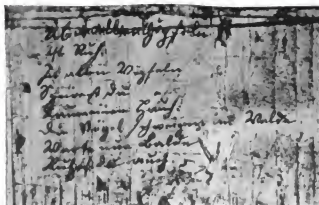 Ueber allen Gipfeln
Ist Ruh,
In allen Wipfeln
Spürest du
Kaum einen Hauch;
Die Vögel schweigen im Walde
Warte nur balde
Ruhest du auch